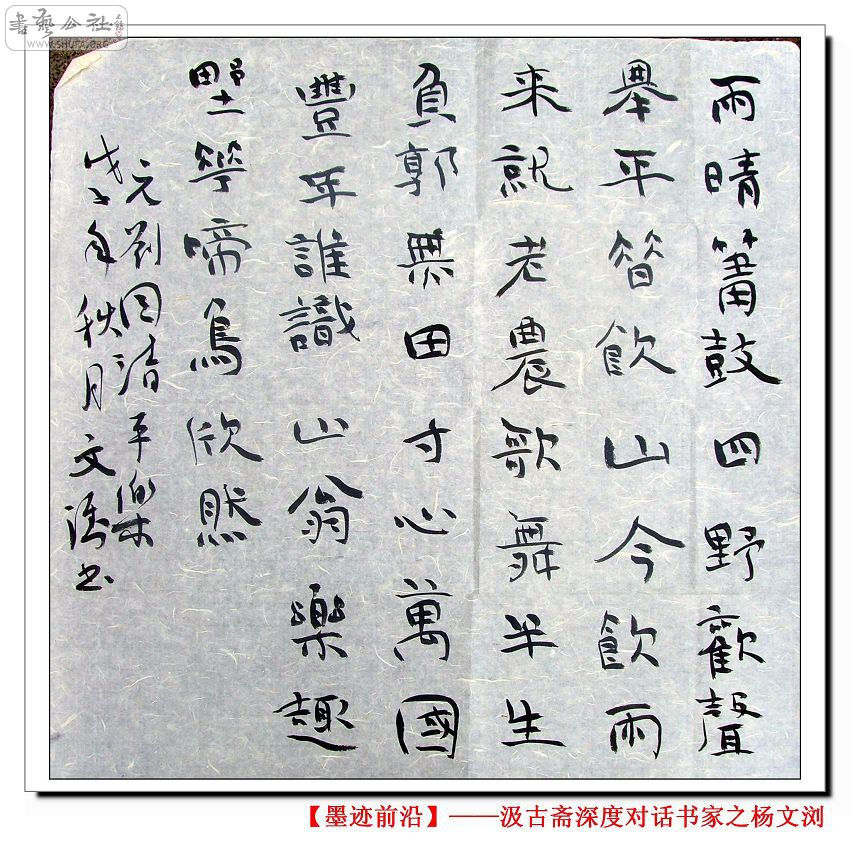 書藝公社
WWW.SHUFA.ORG
雨晴簫鼓四野歡聲
舉平昔飲山今飲雨
来就老農歌舞半生
負郭無田寸心萬國
豐年誰識山翁樂趣
墅華啼鳥欣然
元劉因清平樂
戊子年秋月文浏书
【墨迹前沿】——汲古斋深度对话书家之杨文浏